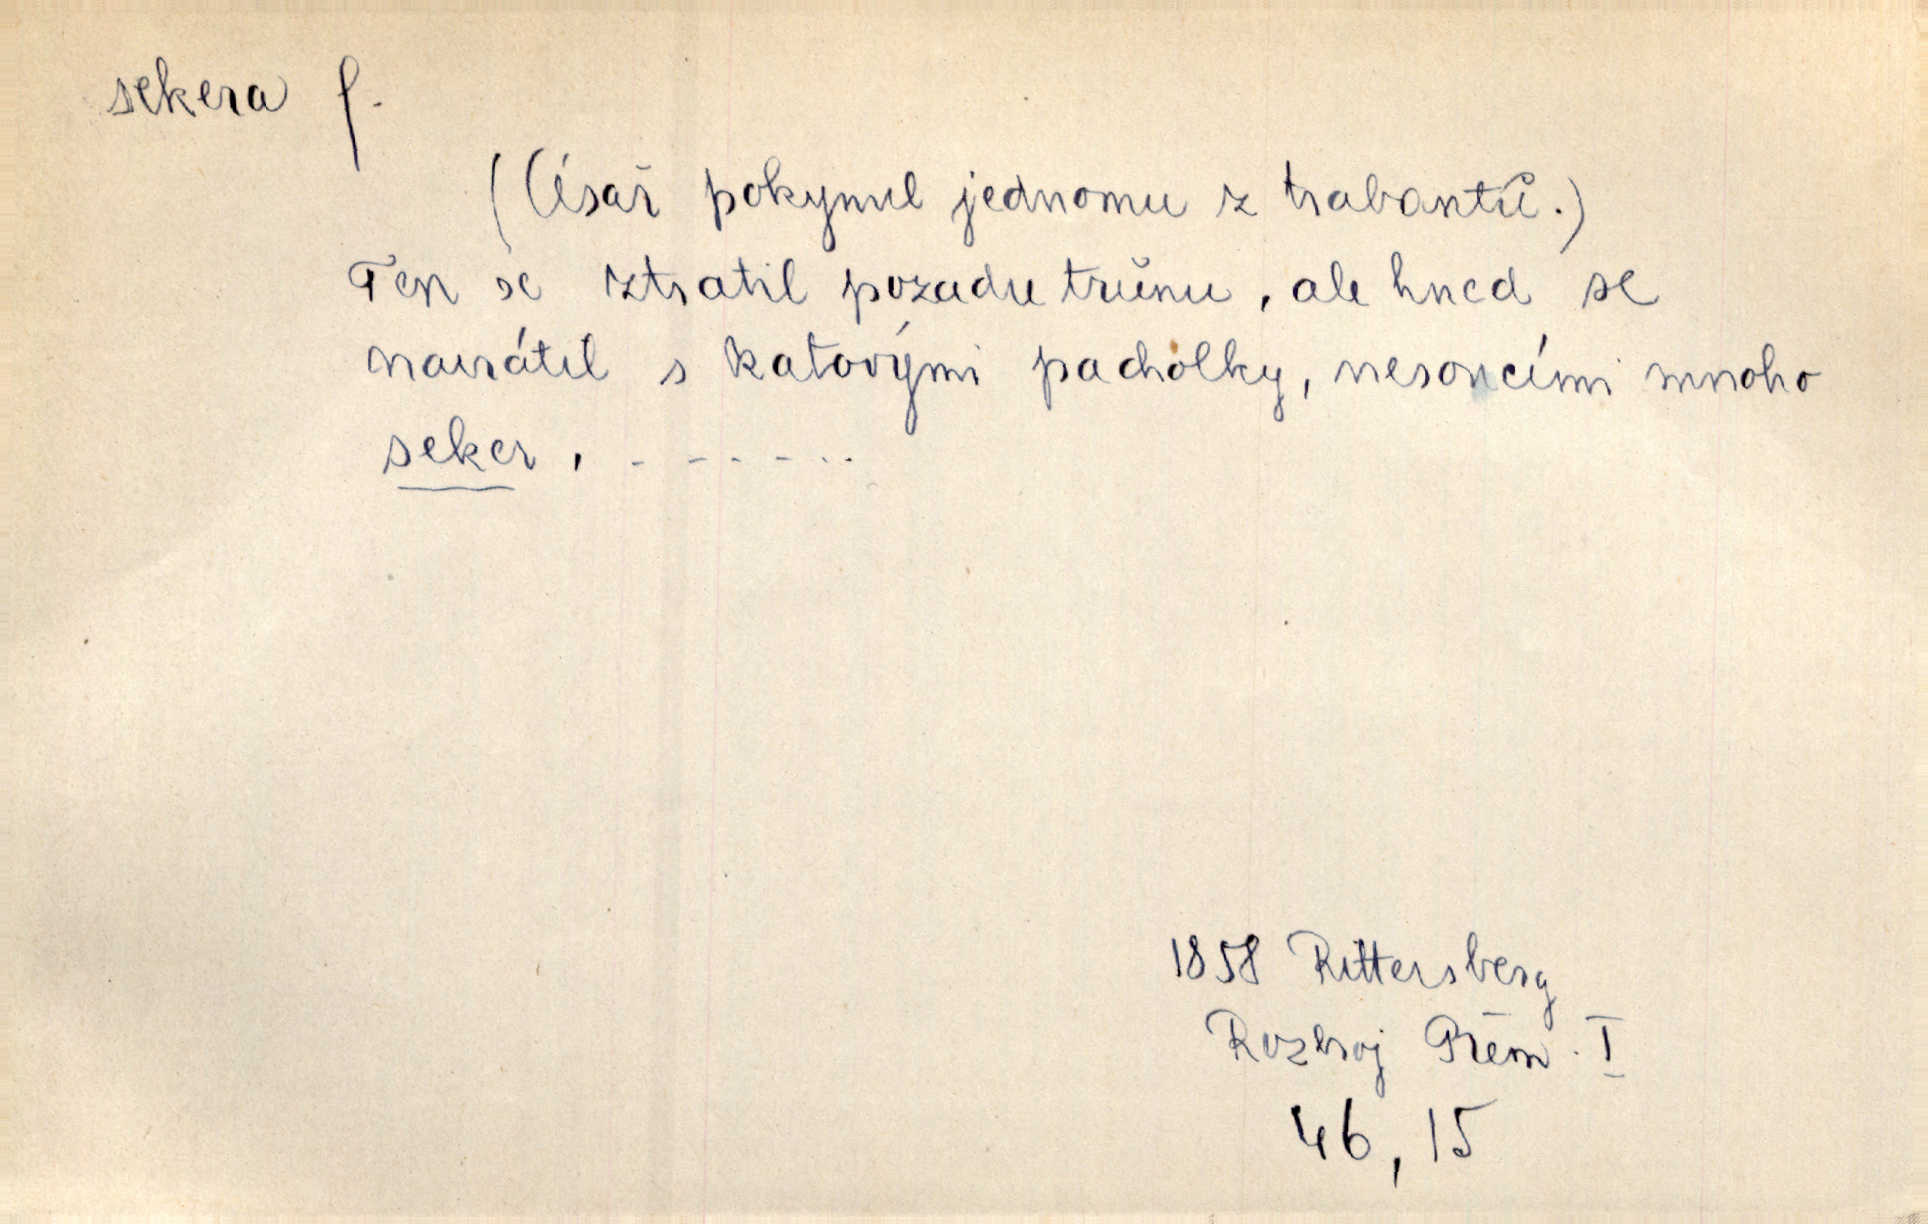 sekera f.
(Císař pokynul jednomu z trabantů.)
Ten se ztratil pozadu trůnu, ale hned se
navrátil s katovými pacholky, nesoucími mnoho
seker, . - - . - . .
1858 Rittersberg
Rozbroj Přem. I
46, 15